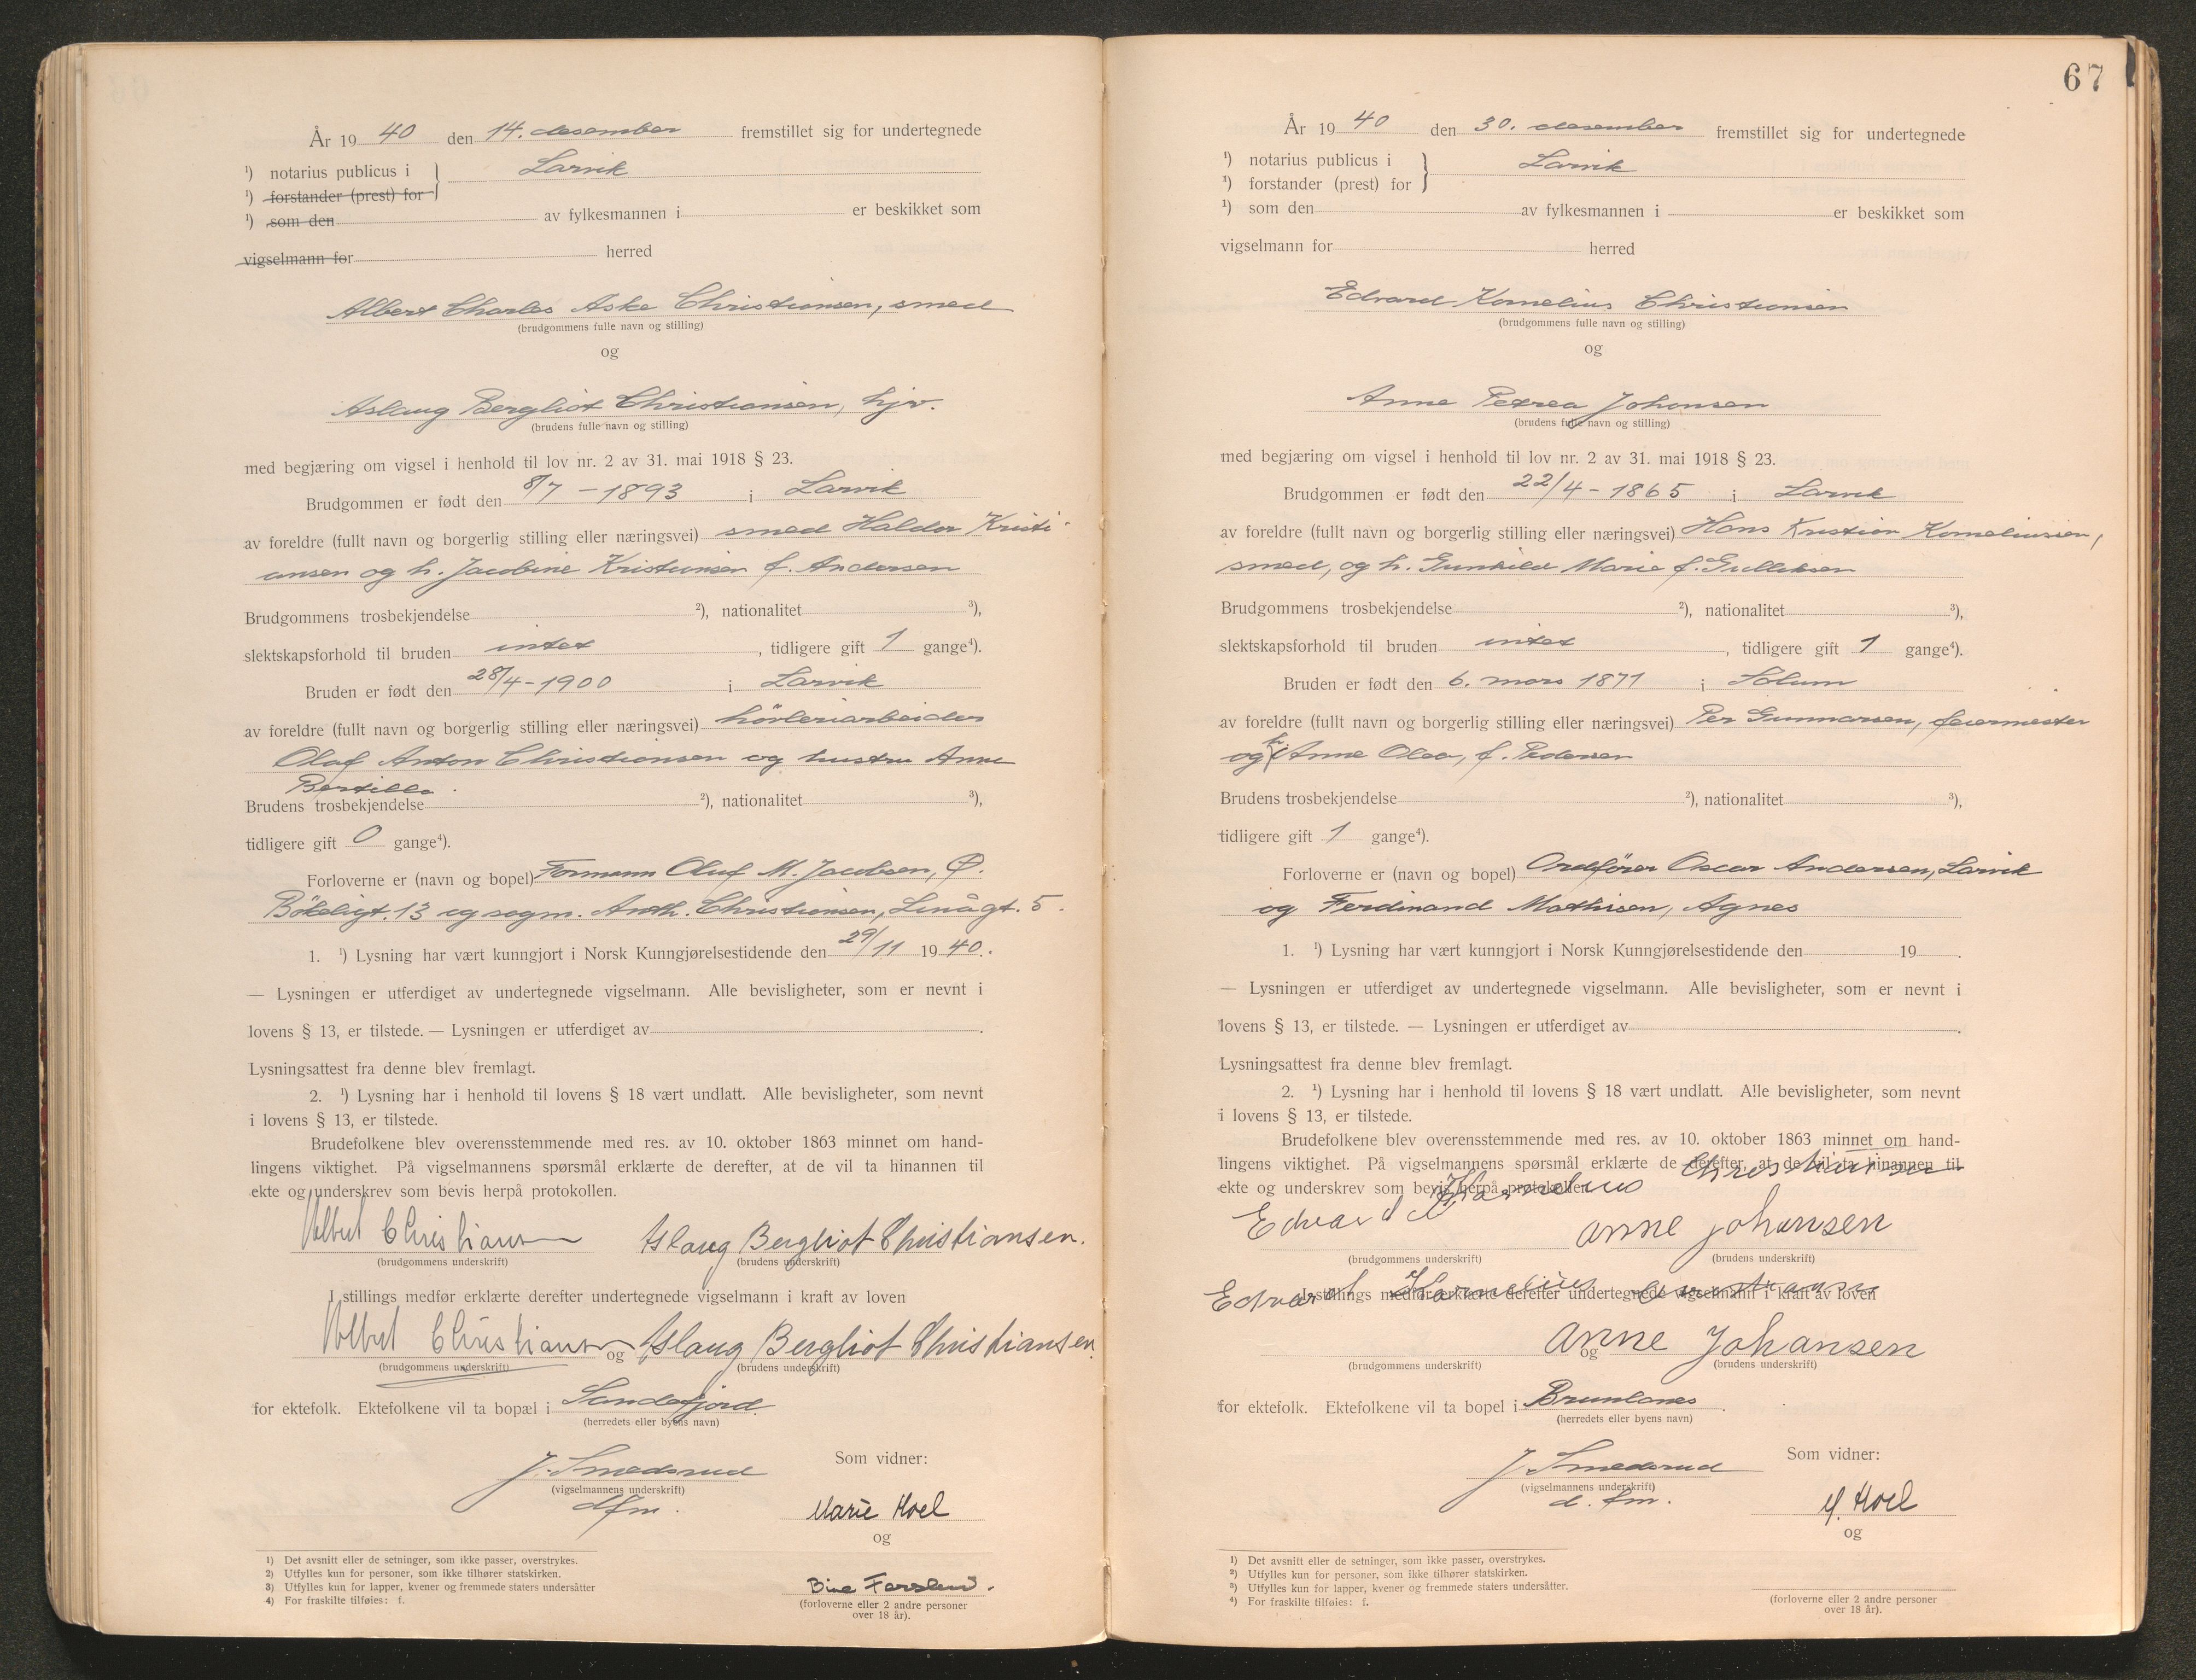 År 19 40 den 14. desember fremstillet sig for undertegnede
¹) notarius publicus i } Larvik
¹) forstander (prest) for
¹) som den av fylkesmannen i er beskikket som
vigselmann for herred
Albert Charles Aske Christiansen, smed
(brudgommens fulle navn og stilling)
og
Aslaug Bergliot Christiansen, hjv.
(brudens fulle navn og stilling)
med begjæring om vigsel i henhold til lov nr. 2 av 31. mai 1918 § 23.
Brudgommen er født den 8/7 - 1893 i Larvik
av foreldre (fullt navn og borgerlig stilling eller næringsvei) smed Haldor Kristi-
ansen og h. Jacobine Kristiansen f. Andersen
Brudgommens trosbekjendelse ²), nationalitet ³),
slektskapsforhold til bruden intet, tidligere gift 1 gange⁴).
Bruden er født den 28/4-1900 i Larvik
av foreldre (fullt navn og borgerlig stilling eller næringsvei) hövleriarbeider
Olaf Anton Christiansen og hustru Anne
Bertille.
Brudens trosbekjendelse ²), nationalitet ³),
tidligere gift 0 gange⁴).
Forloverne er (navn og bopel) Formann Oluf M. Jacobsen, Ø.
Bökeligt. 13 og sogm. Anth. Christiansen, Linågt. 5.
1. ¹) Lysning har vært kunngjort i Norsk Kunngjørelsestidende den 29/11 19 40.
— Lysningen er utferdiget av undertegnede vigselmann. Alle bevisligheter, som er nevnt i
lovens § 13, er tilstede. — Lysningen er utferdiget av .
Lysningsattest fra denne blev fremlagt.
2. ¹) Lysning har i henhold til lovens § 18 vært undlatt. Alle bevisligheter, som nevnt
i lovens § 13, er tilstede.
Brudefolkene blev overensstemmende med res. av 10. oktober 1863 minnet om hand-
lingens viktighet. På vigselmannens spørsmål erklærte de derefter, at de vil ta hinannen til
ekte og underskrev som bevis herpå protokollen.
Albert Christiansen Aslaug Bergliot Christiansen.
(brudgommens underskrift) (brudens underskrift)
I stillings medfør erklærte derefter undertegnede vigselmann i kraft av loven
Albert Christiansen og Aslaug Bergliot Christiansen.
(brudgommens underskrift) (brudens underskrift)
for ektefolk. Ektefolkene vil ta bopæl i Sandefjord.
(herredets eller byens navn)
J. Smedsrud Som vidner:
(vigselmannens underskrift)
dfm. Marie Hoel
og
Bine Farslund.
(forloverne eller 2 andre personer
over 18 år).
1) Det avsnitt eller de setninger, som ikke passer, overstrykes.
2) Utfylles kun for personer, som ikke tilhører statskirken.
3) Utfylles kun for lapper, kvener og fremmede staters undersåtter
4) For fraskilte tilføies: f.
67
År 19 40 den 30. desember fremstillet sig for undertegnede
¹) notarius publicus i } Larvik
¹) forstander (prest) for
¹) som den av fylkesmannen i er beskikket som
vigselmann for herred
Edvard Kornelius Christiansen
(brudgommens fulle navn og stilling)
og
Anne Petrea Johansen
(brudens fulle navn og stilling)
med begjæring om vigsel i henhold til lov nr. 2 av 31. mai 1918 § 23.
Brudgommen er født den 22/4-1865 i Larvik
av foreldre (fullt navn og borgerlig stilling eller næringsvei) Hans Kristian Korneliussen,
smed, og h. Gunhild Marie f. Gulliksen
Brudgommens trosbekjendelse ²), nationalitet ³),
slektskapsforhold til bruden intet, tidligere gift 1 gange⁴).
Bruden er født den 6. mars 1871 i Solum
av foreldre (fullt navn og borgerlig stilling eller næringsvei) Per Gunnarsen, feiermester
og h. Anne Olea, f. Pedersen
Brudens trosbekjendelse ²), nationalitet ³),
tidligere gift 1 gange⁴).
Forloverne er (navn og bopel) Ordfører Oscar Andersen, Larvik
og Ferdinand Mathisen, Agnes
1. ¹) Lysning har vært kunngjort i Norsk Kunngjørelsestidende den 19 .
— Lysningen er utferdiget av undertegnede vigselmann. Alle bevisligheter, som er nevnt i
lovens § 13, er tilstede. — Lysningen er utferdiget av .
Lysningsattest fra denne blev fremlagt.
2. ¹) Lysning har i henhold til lovens § 18 vært undlatt. Alle bevisligheter, som nevnt
i lovens § 13, er tilstede.
Brudefolkene blev overensstemmende med res. av 10. oktober 1863 minnet om hand-
lingens viktighet. På vigselmannens spørsmål erklærte de derefter, at de vil ta hinannen til
ekte og underskrev som bevis herpå protokollen.
Edvard Kornelius Christiansen Anne Johansen
(brudgommens underskrift) (brudens underskrift)
I stillings medfør erklærte derefter undertegnede vigselmann i kraft av loven
Edvard Kornelius Christiansen
og Anne Johansen
(brudgommens underskrift) (brudens underskrift)
for ektefolk. Ektefolkene vil ta bopel i Brunlanes.
(herredets eller byens navn)
J. Smedsrud Som vidner:
(vigselmannens underskrift)
d. fm. M. Hoel
og
(forloverne eller 2 andre personer
over 18 år).
1) Det avsnitt eller de setninger, som ikke passer, overstrykes.
2) Utfylles kun for personer, som ikke tilhører statskirken.
3) Utfylles kun for lapper, kvener og fremmede staters undersåtter.
4) For fraskilte tilføies: f.